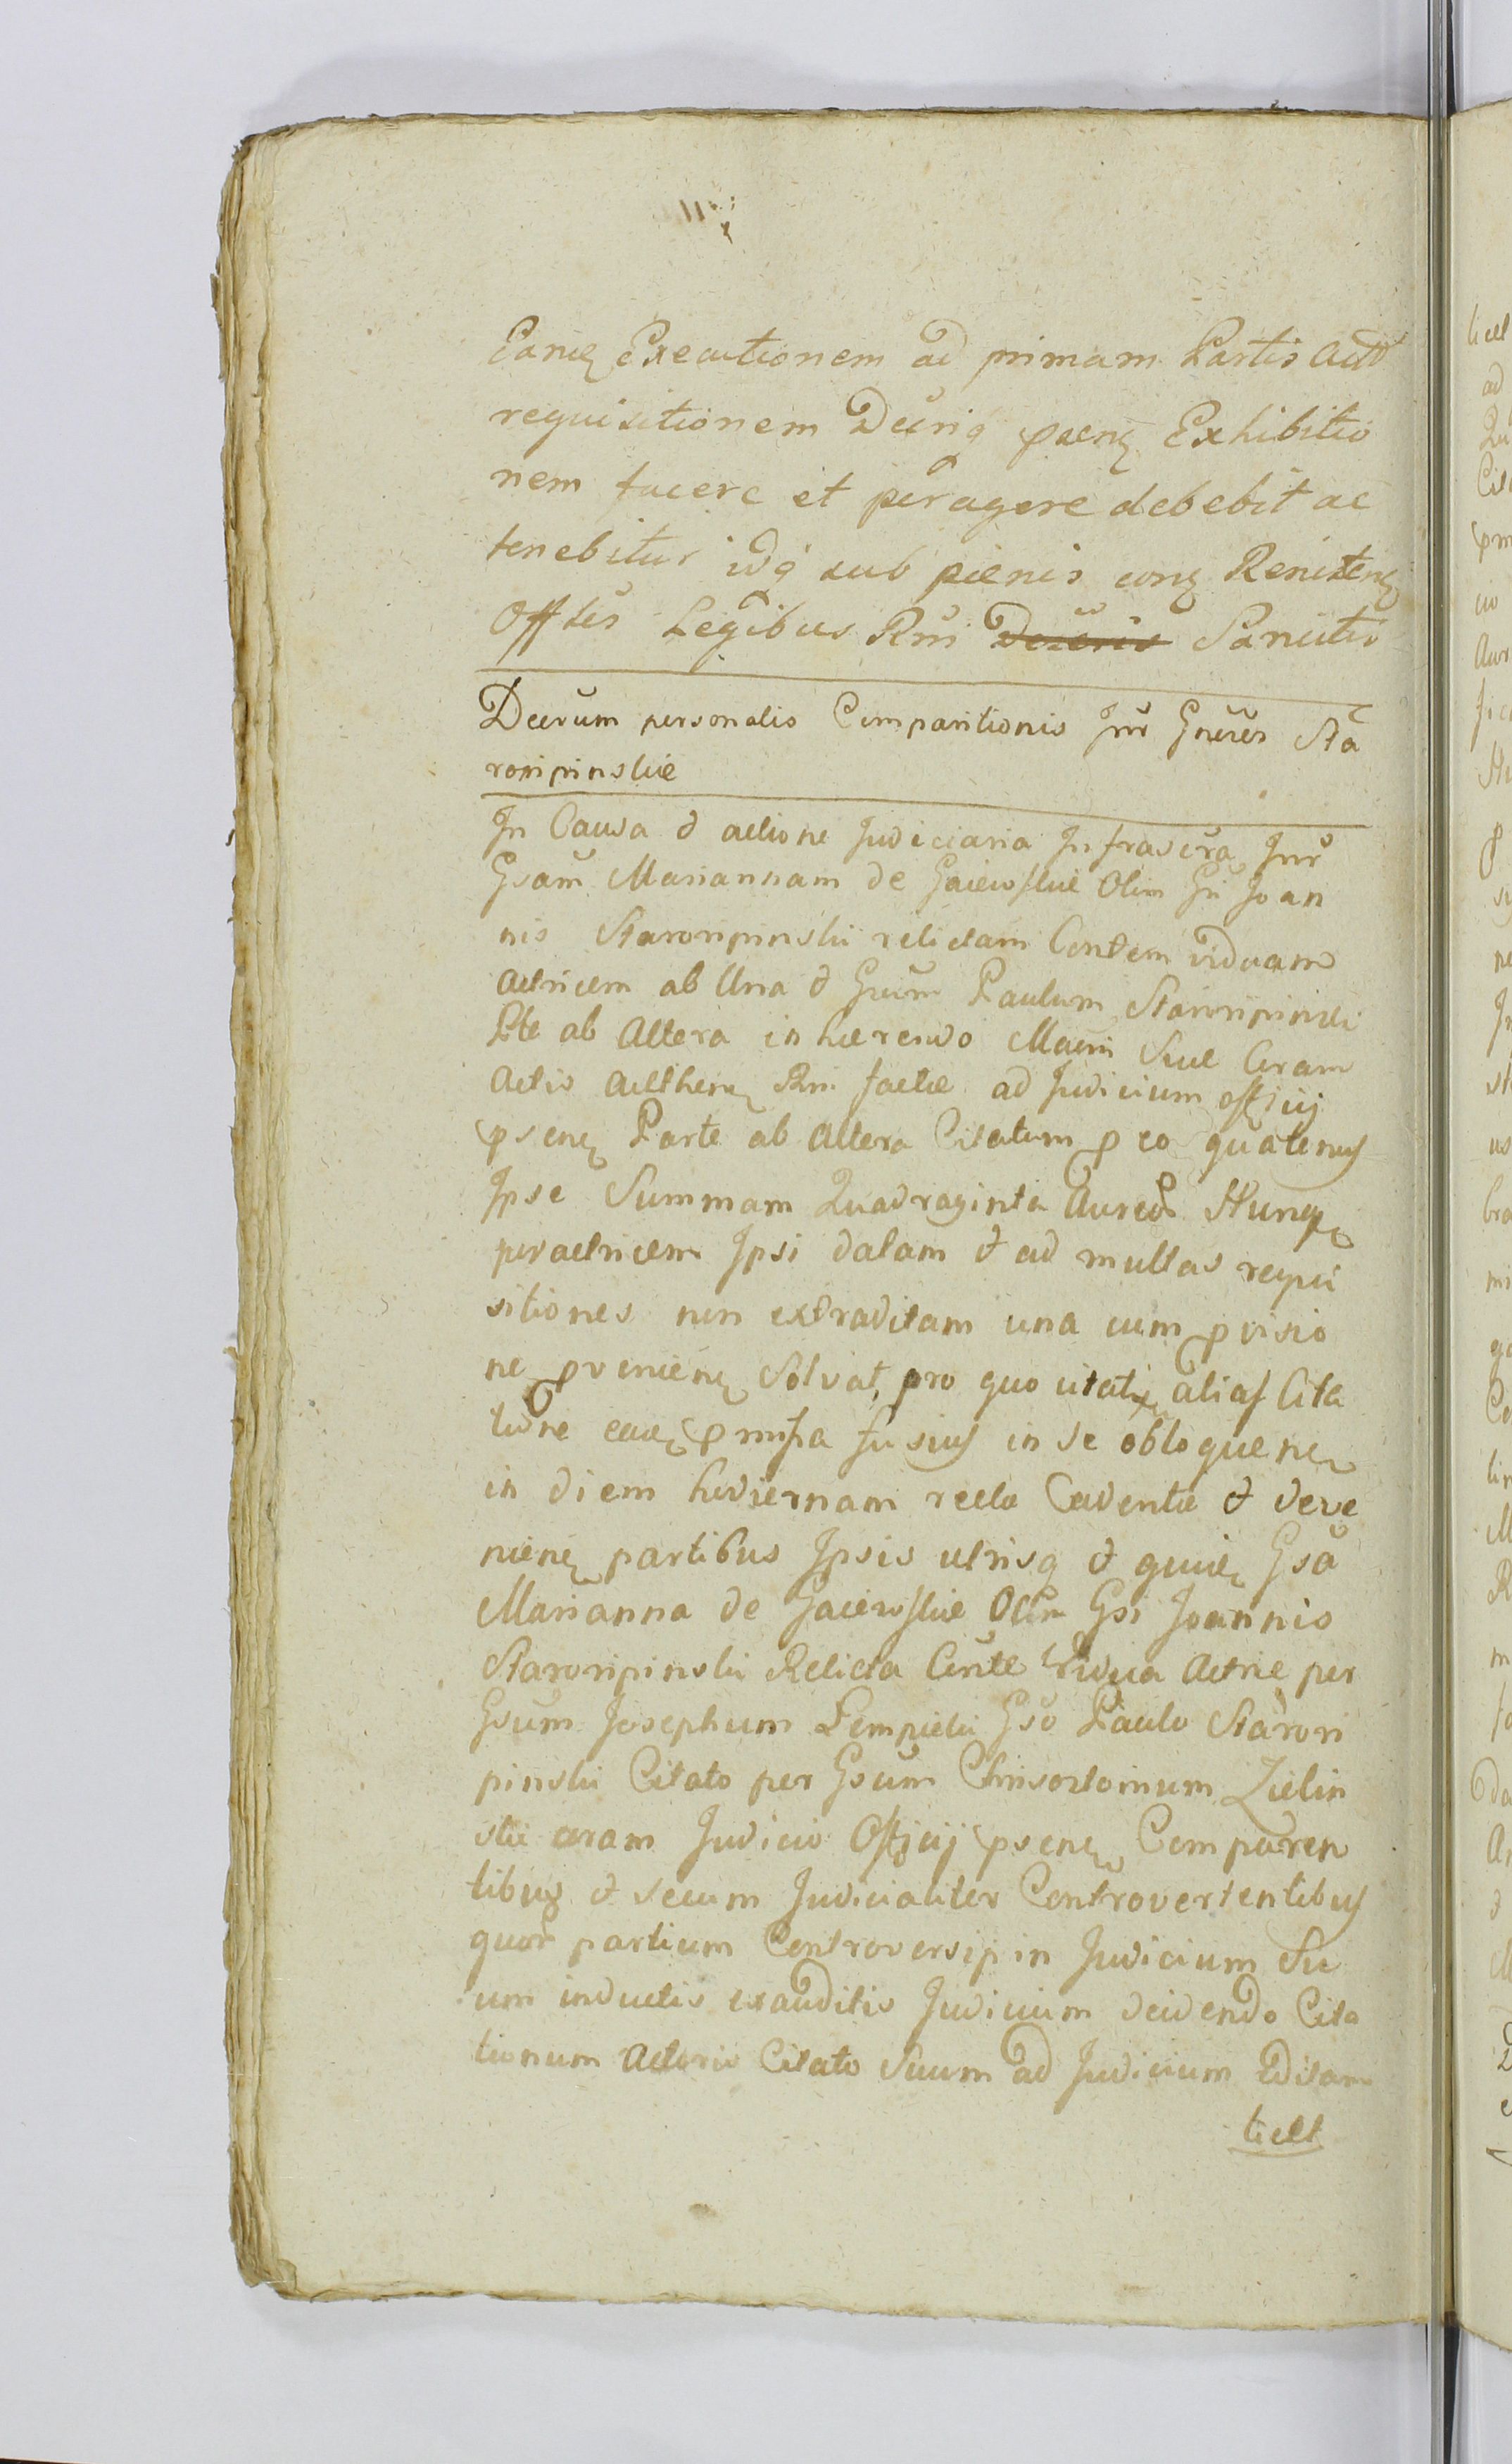 Executionem ad primam Partis
requisitionem Exhibitio
nem facere et peragere debebit ac
tenebitur idq sub pænis
Legibus Rni Sancitis
Decrum personalis Comparitionis Inr Gneros Sta
roripinskie
In Causa & actione Judiciaria Infrascra Inr
Gsam Mariannam de Gaiewskie Olim Gn Joan
nis Staroripinskii relictam Conthem viduam
actricem ab Una & Gnum Paulum Staroripinski
Pte ab Altera in hærendo Maem Suæ Coram
Actis Acthen Rni factæ ad Judicium officij
psen Parte ab Altera Citatum p eo quatenus
Ipse Summam Quadraginta Aureor Hung
per actricem Ipsi datam & ad multas requi
sitiones non extraditam una cum pvisio
ne pvenien Solvat, pro quo citatis alias Cita
tione fusius in se obloquen
in diem hodiernam recte Cadente & deve
nien partibus Ipsis utrisq & Gsa
Marianna de Gaiewskie Olim Gsi Joannis
Staroripinski Relicta Conte Vidua Actrice per
Gsum Josephum Pempicki Gso Paulo Starori
pinski Citato per Gsum Chrisostomum Zielin
ski coram Judicio Officij psen Comparen
tibus & secum Judicialiter Controvertentibus
quor partium Controversijs in Judicium Su
um inductis exauditis Judicium decidendo Cita
tionum Actoris Citato Suum ad Judicium Editam
licet